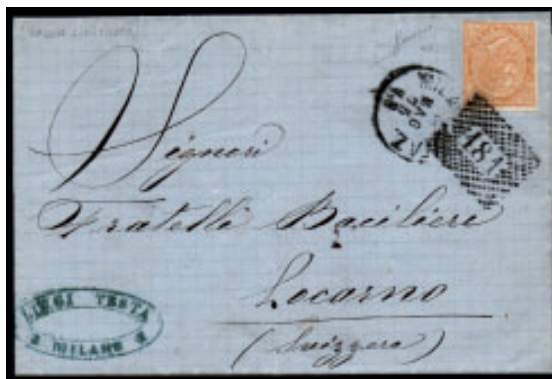 181
Signori
Fratelli Bacilieri
Locarno
(Svizzera)
LUIGI TESTA
MILANO